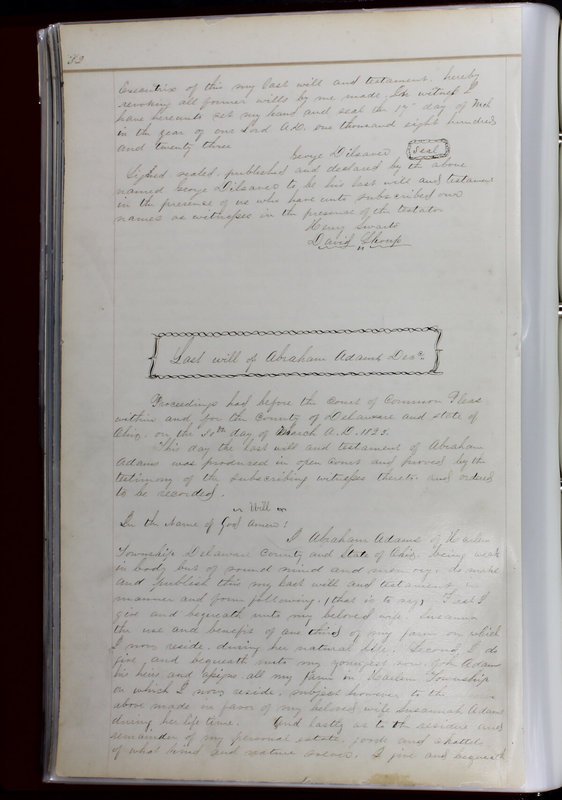 Executrix of this my last will and testament, hereby
revoking all former wills by me made. In witness I
have hereunto set my hand and seal the day of Mch
in the year of our Lord A.D. one thousand eight hundred
and twenty three
George Dilsaver seal
Signed, sealed, published and declared by the above
named George Dilsaver to be his last will and testament
in the presence of us who have unto subscribed our
names as witnesses in the presence of the testator
Henry Swarts
David Shoup
Last will of Abraham Adams Decd.
Proceedings had before the Court of Common Pleas
within and for the County of Delaware and state of
Ohio. on the 20th day of March A.D. 1823.
This day the last will and testament of Abraham
Adams was produced in open Court and proved by the
testimony of the subscribing witnesses thereto and ordered
to be recorded.
Will
In the Name of God Amen!
I Abraham Adams of Harlem
Township Delaware County and State of Ohio being weak
in body but of sound mind and memory, do make
and publish this my last will and testament in
manner and form following, (that is to say) First I
give and bequeath unto my beloved wife Susanna
the use and benefit of one third of my farm on which
I now reside, during her natural life. Second, I do
give and bequeath unto my youngest son John Adams
his heirs and assigns all my farm in Harlem Township
on which I now reside, subject however to the
above made in favor of my beloved wife Susannah Adams
during her life time. And lastly as to the residue and
remainder of my personal estate, goods and chattels
of what kind and nature soever. I give and bequeath